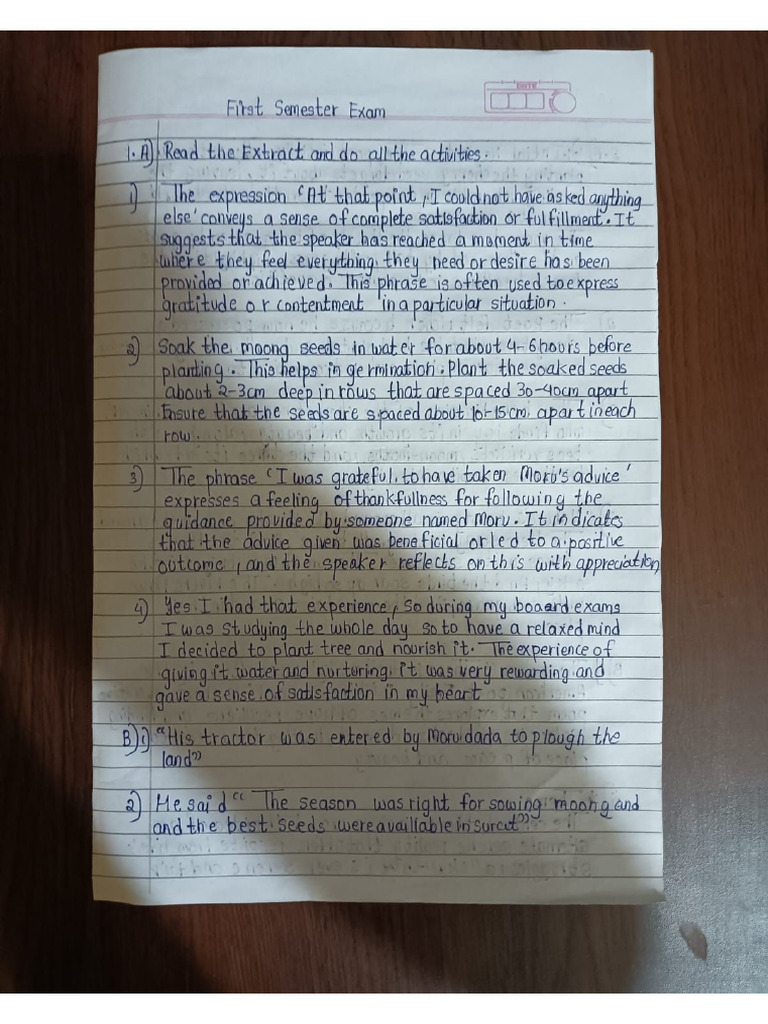 DATE
First Semester Exam
1. A) Read the Extract and do all the activities.
1) The expression 'At that point, I could not have asked anything
else' conveys a sense of complete satisfaction or fulfillment. It
suggests that the speaker has reached a moment in time
where they feel everything they need or desire has been
provided or achieved. This phrase is often used to express
gratitude or contentment in a particular situation.
2) Soak the moong seeds in water for about 4-6 hours before
planting. This helps in germination. Plant the soaked seeds
about 2-3cm deep in rows that are spaced 30-40cm apart
Ensure that the seeds are spaced about 10-15cm apart in each
row.
3) The phrase 'I was grateful to have taken Moru's advice'
expresses a feeling of thankfullness for following the
guidance provided by someone named Moru. It indicates
that the advice given was beneficial or led to a positive
outcome, and the speaker reflects on this with appreciation
4) Yes I had that experience, So during my boaard exams
I was studying the whole day so to have a relaxed mind
I decided to plant tree and nourish it. The experience of
giving it water and nurturing. it was very rewarding and
gave a sense of satisfaction in my heart
B) 1) "His tractor was entered by Morudada to plough the
land"
2) He said "The season was right for sowing moong and
and the best seeds were availlable in Surat"